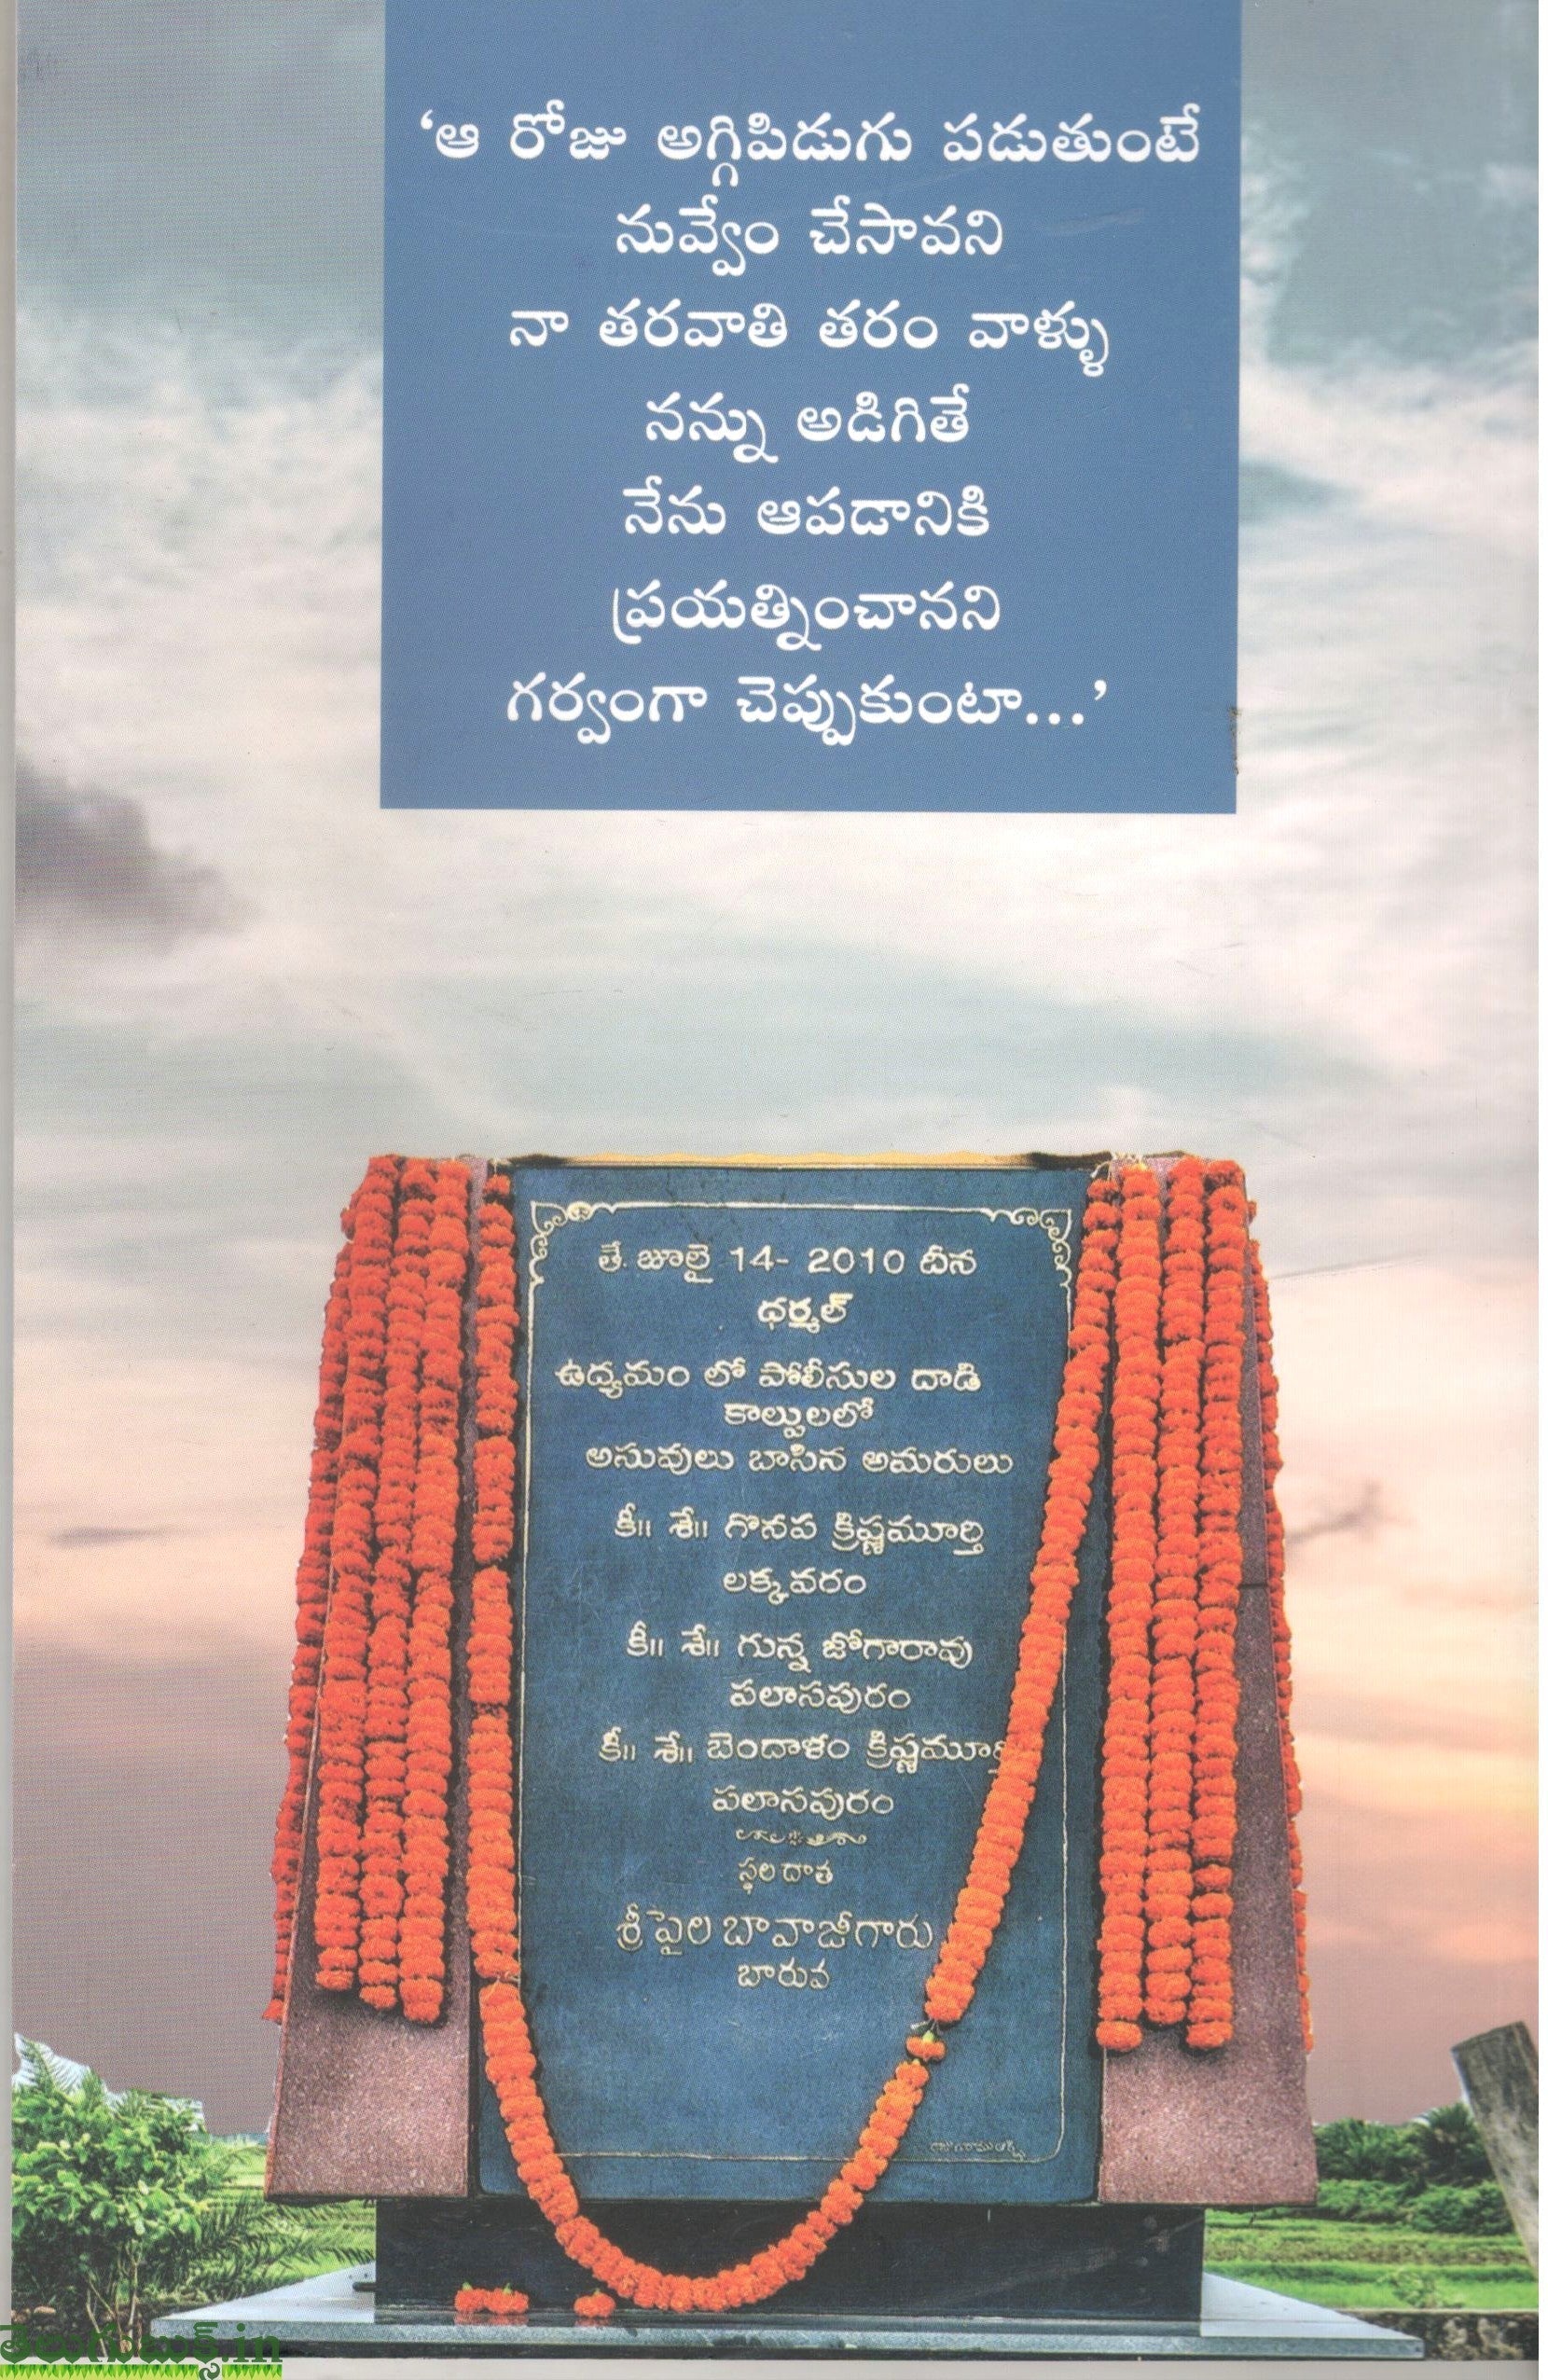 ‘ఆ రోజు అగ్గిపిడుగు పడుతుంటే
నువ్వేం చేసావని
నా తరవాతి తరం వాళ్ళు
నన్ను అడిగితే
నేను ఆపడానికి
ప్రయత్నించానని
గర్వంగా చెప్పుకుంటా...’
తే. జూలై 14- 2010 దీన
థర్మల్
ఉద్యమం లో పోలీసుల దాడి
కాల్పులలో
అసువులు బాసిన అమరులు
కీ॥ శే॥ గొనప క్రిష్ణమూర్తి
లక్కవరం
కీ॥ శే॥ గున్న జోగారావు
పలాసపురం
కీ॥ శే॥ బెందాళం క్రిష్ణమూర్తి
పలాసపురం
స్థల దాత
శ్రీ పైల బావాజీగారు
బారువ
తెలుగుబుక్స్.in